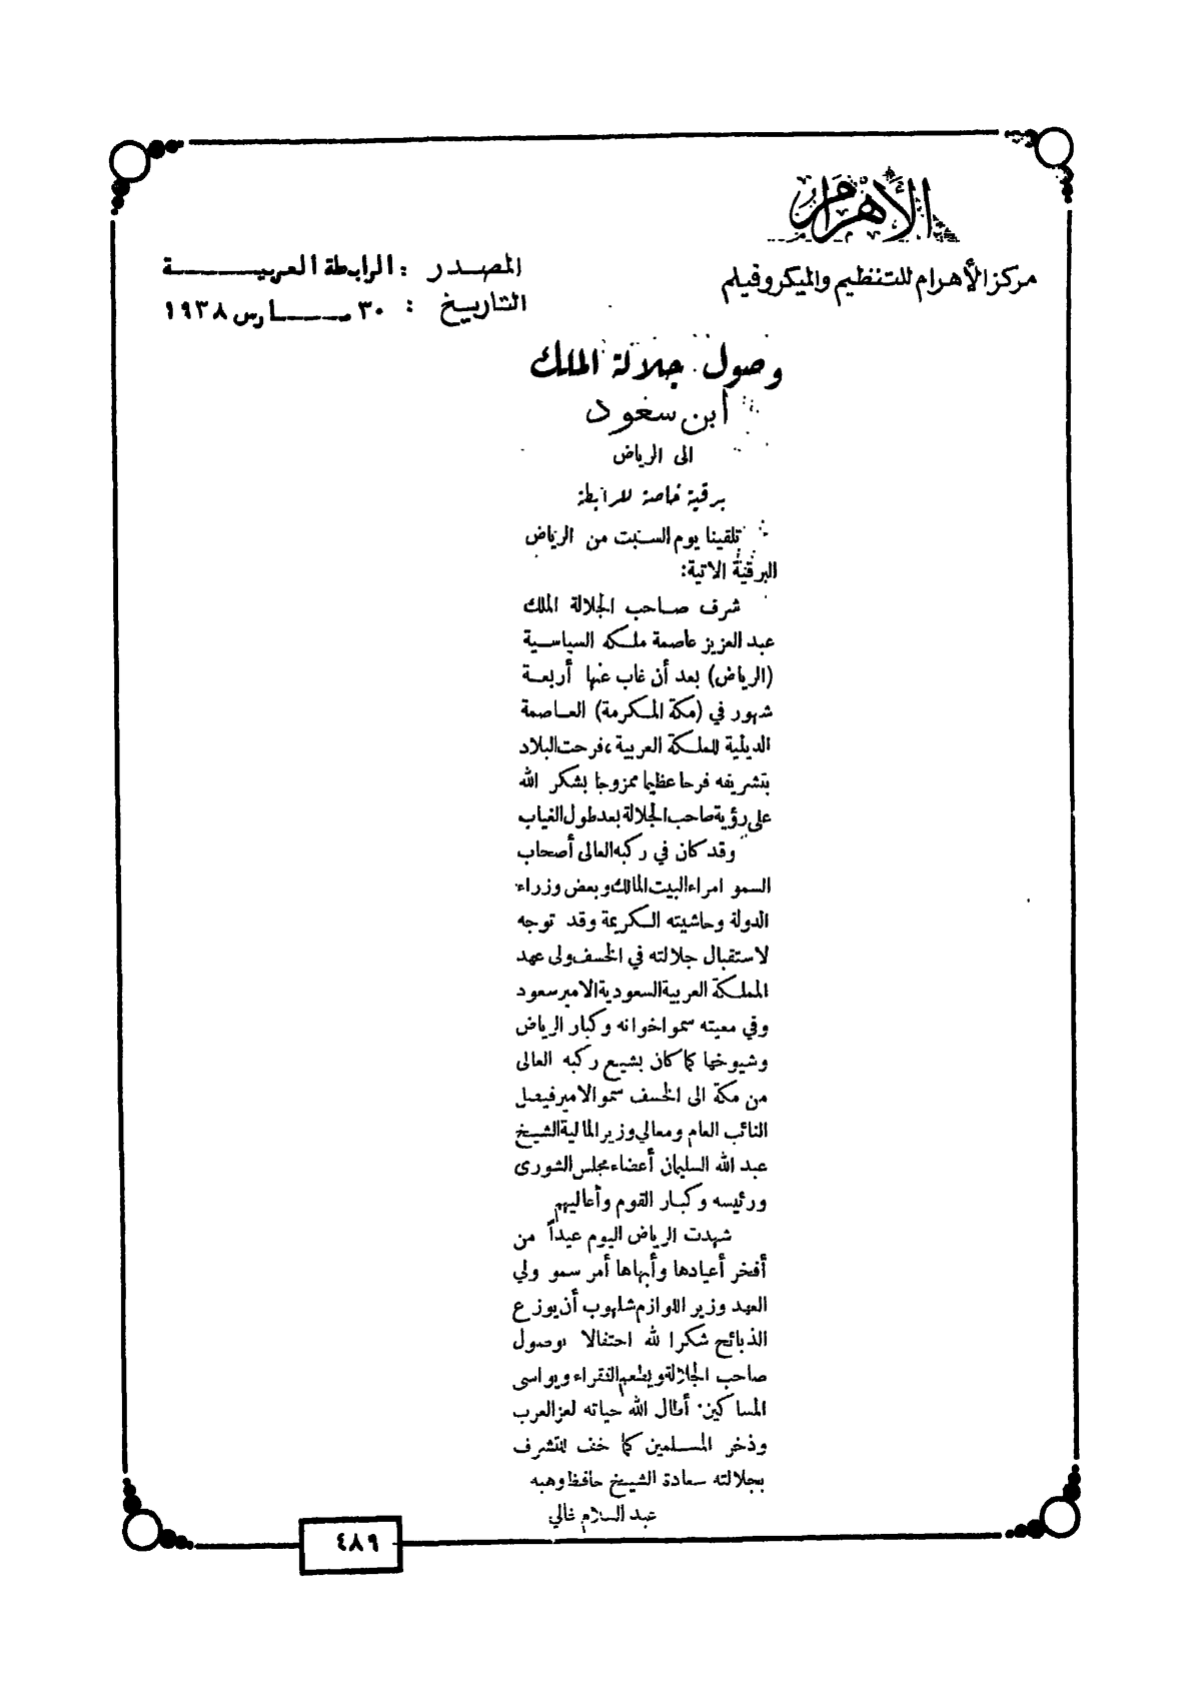 الأهرام
مركز الأهرام للتنظيم والميكروفيلم
المصدر : الرابطة العربية
التاريخ : ٣٠ مارس ١٩٣٨
وصول جلالة الملك
ابن سعود
الى الرياض
برقية خاصة للرابطة
تلقينا يوم السبت من الرياض
البرقية الاتية:
شرف صاحب الجلالة الملك
عبد العزيز عاصمة ملكه السياسية
(الرياض) بعد أن غاب عنها أربعة
شهور في (مكة المكرمة) العاصمة
الدينية للملكة العربية ، فرحت البلاد
بتشريفه فرحا عظيما ممزوجا بشكر الله
على رؤية صاحب الجلالة بعد طول الغياب
وقد كان في ركبه العالى أصحاب
السمو امراء البيت المالك وبعض وزراء
الدولة وحاشيته الكريمة وقد توجه
لاستقبال جلالته في الخسف ولى عهد
المملكة العربية السعودية الامير سعود
وفي معيته سمو اخوانه وكبار الرياض
وشيوخها كما كان بشيع ركبه العالى
من مكة الى الخسف سمو الامير فيصل
النائب العام ومعالي وزير المالية الشيخ
عبد الله السليمان أعضاء مجلس الشورى
ورئيسه وكبار القوم وأعاليهم
شهدت الرياض اليوم عيداً من
أفخر أعيادها وأبهاها أمر سمو ولي
العهد وزير اللوازم شلهوب أن يوزع
الذبائح شكرا لله احتفالا بوصول
صاحب الجلالة ويطعم الفقراء ويواسى
المساكين. أطال الله حياته لعز العرب
وذخر المسلمين كما خف للتشرف
بجلالته سعادة الشيخ حافظ وهبه
عبد السلام غالي
٤٨٩